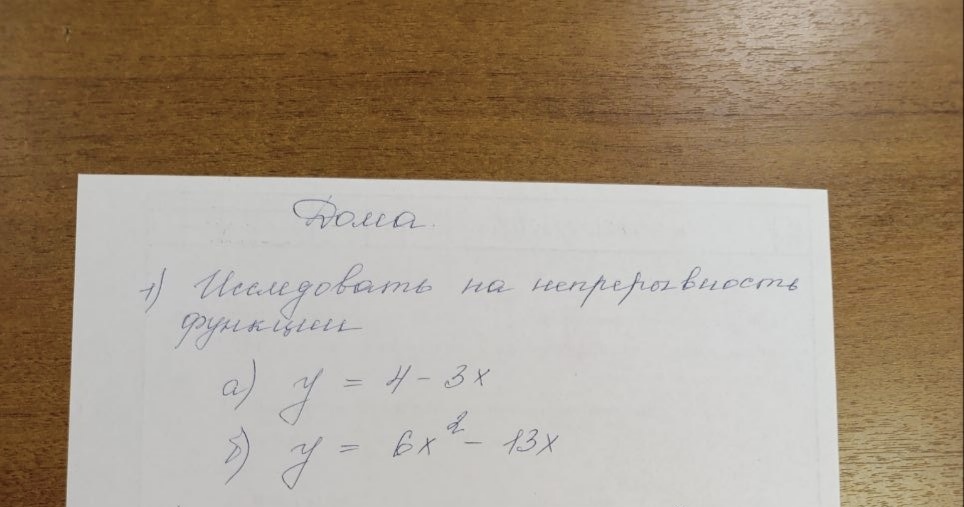 Дома.
1) Исследовать на непрерывность
функции
а) y = 4 - 3x
б) y = 6x² - 13x